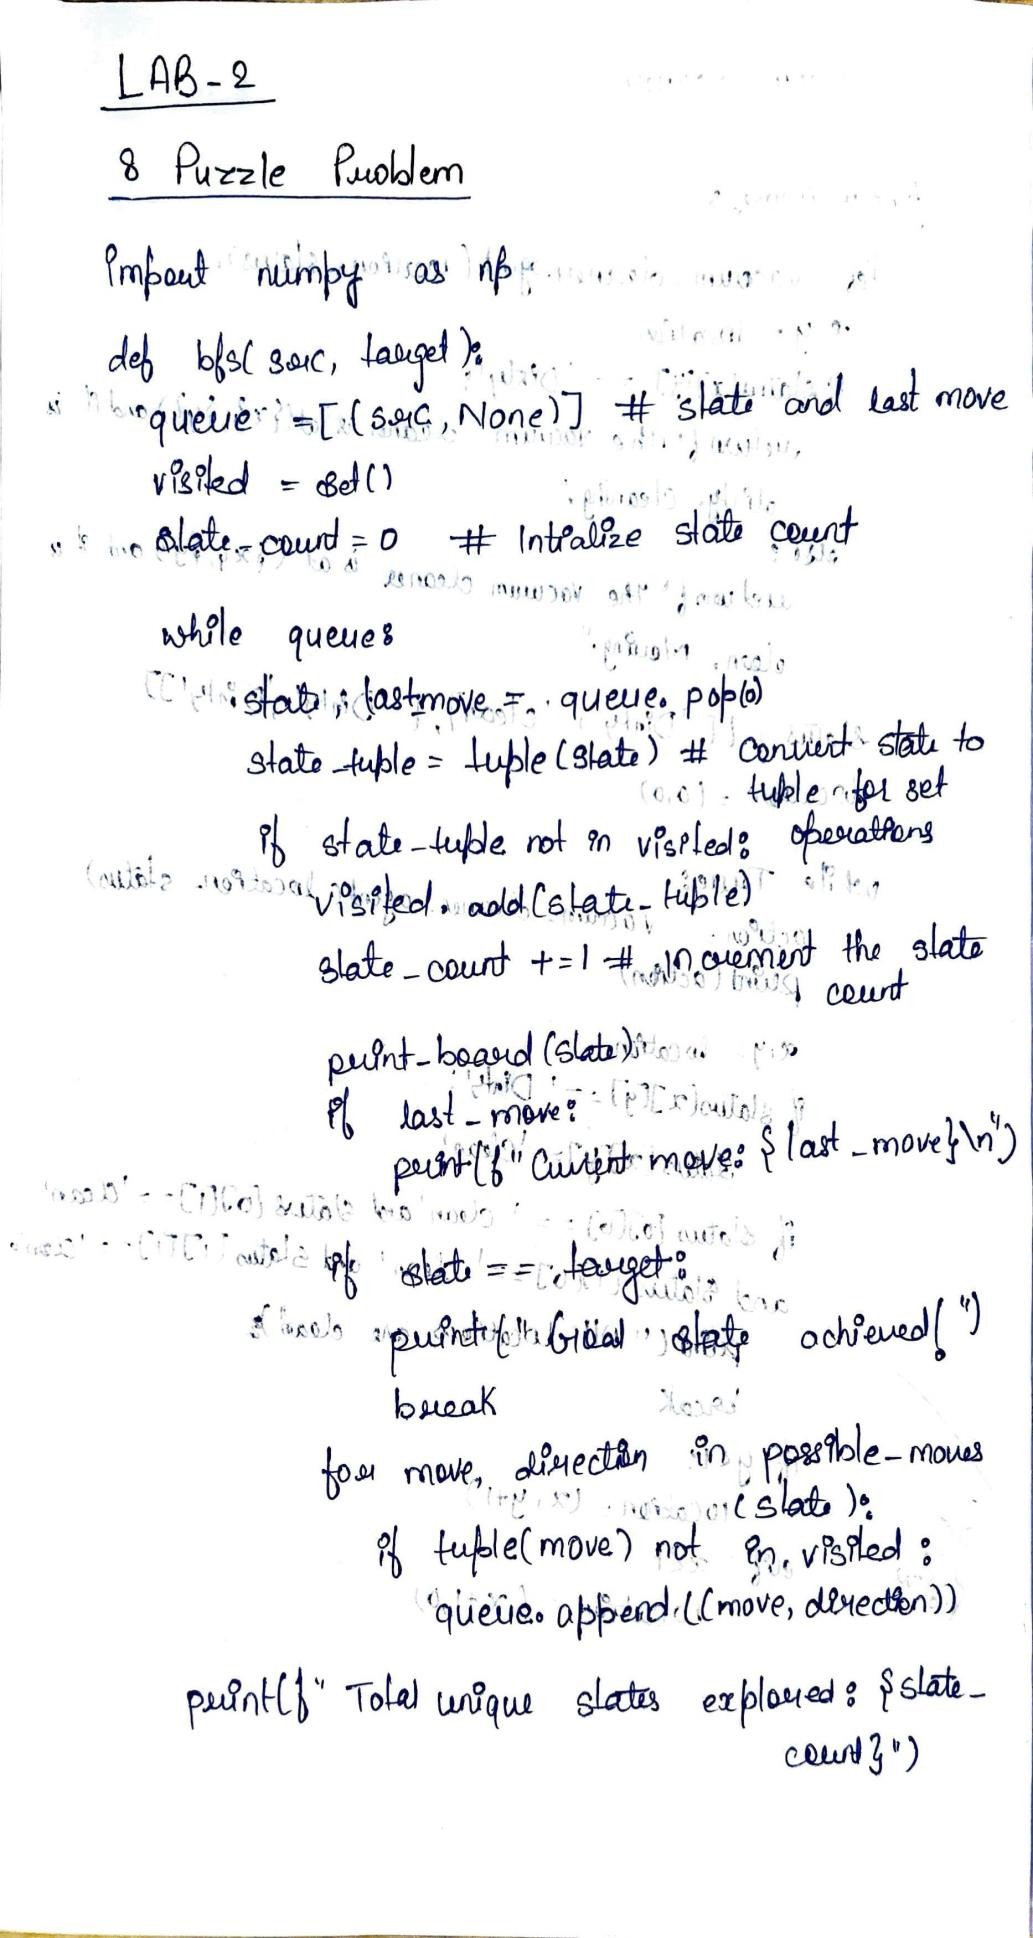 LAB-2
8 Puzzle Problem
import numpy as np
def bfs(src, target):
queue = [(src, None)] # state and last move
visited = set()
state_count = 0 # Intialize state count
while queue:
state, last_move = queue.pop(0)
state_tuple = tuple(state) # Convert state to
tuple for set
if state_tuple not in visited: operations
visited.add(state_tuple)
state_count += 1 # increment the state
count
print_board(state)
if last_move:
print(f"Current move: {last_move}\n")
if state == target:
print(f"Goal state achieved!")
break
for move, direction in possible_moves
(state):
if tuple(move) not in visited:
queue.append((move, direction))
print(f"Total unique states explored: {state_
count}")